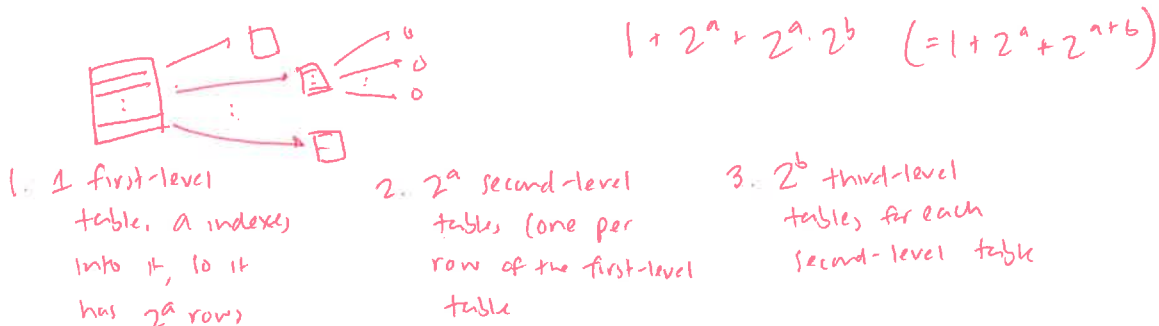 1 + 2^a + 2^a · 2^b (= 1 + 2^a + 2^(a+b))
1. 1 first-level
table. a indexes
into it, so it
has 2^a rows
2. 2^a second-level
tables (one per
row of the first-level
table
3. 2^b third-level
tables for each
second-level table